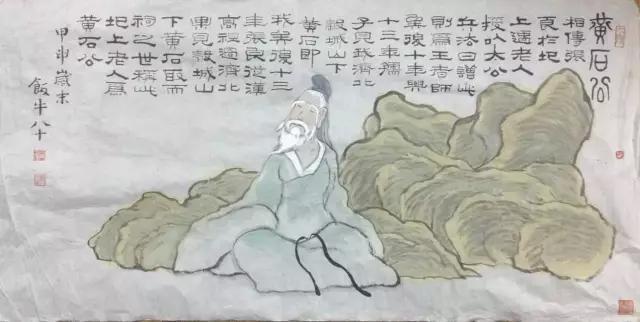 黄石公
相傳張
良於圯
上遇老人
授以太公
兵法曰讀此
則爲王者師
矣後十年興
十三年孺
子見我濟北
穀城山下
黄石即
我矣後十三
年張良從漢
高祖過濟北
果見穀城山
下黄石取而
祠之世稱此
圯上老人爲
黄石公
甲申歲末
飯牛八十